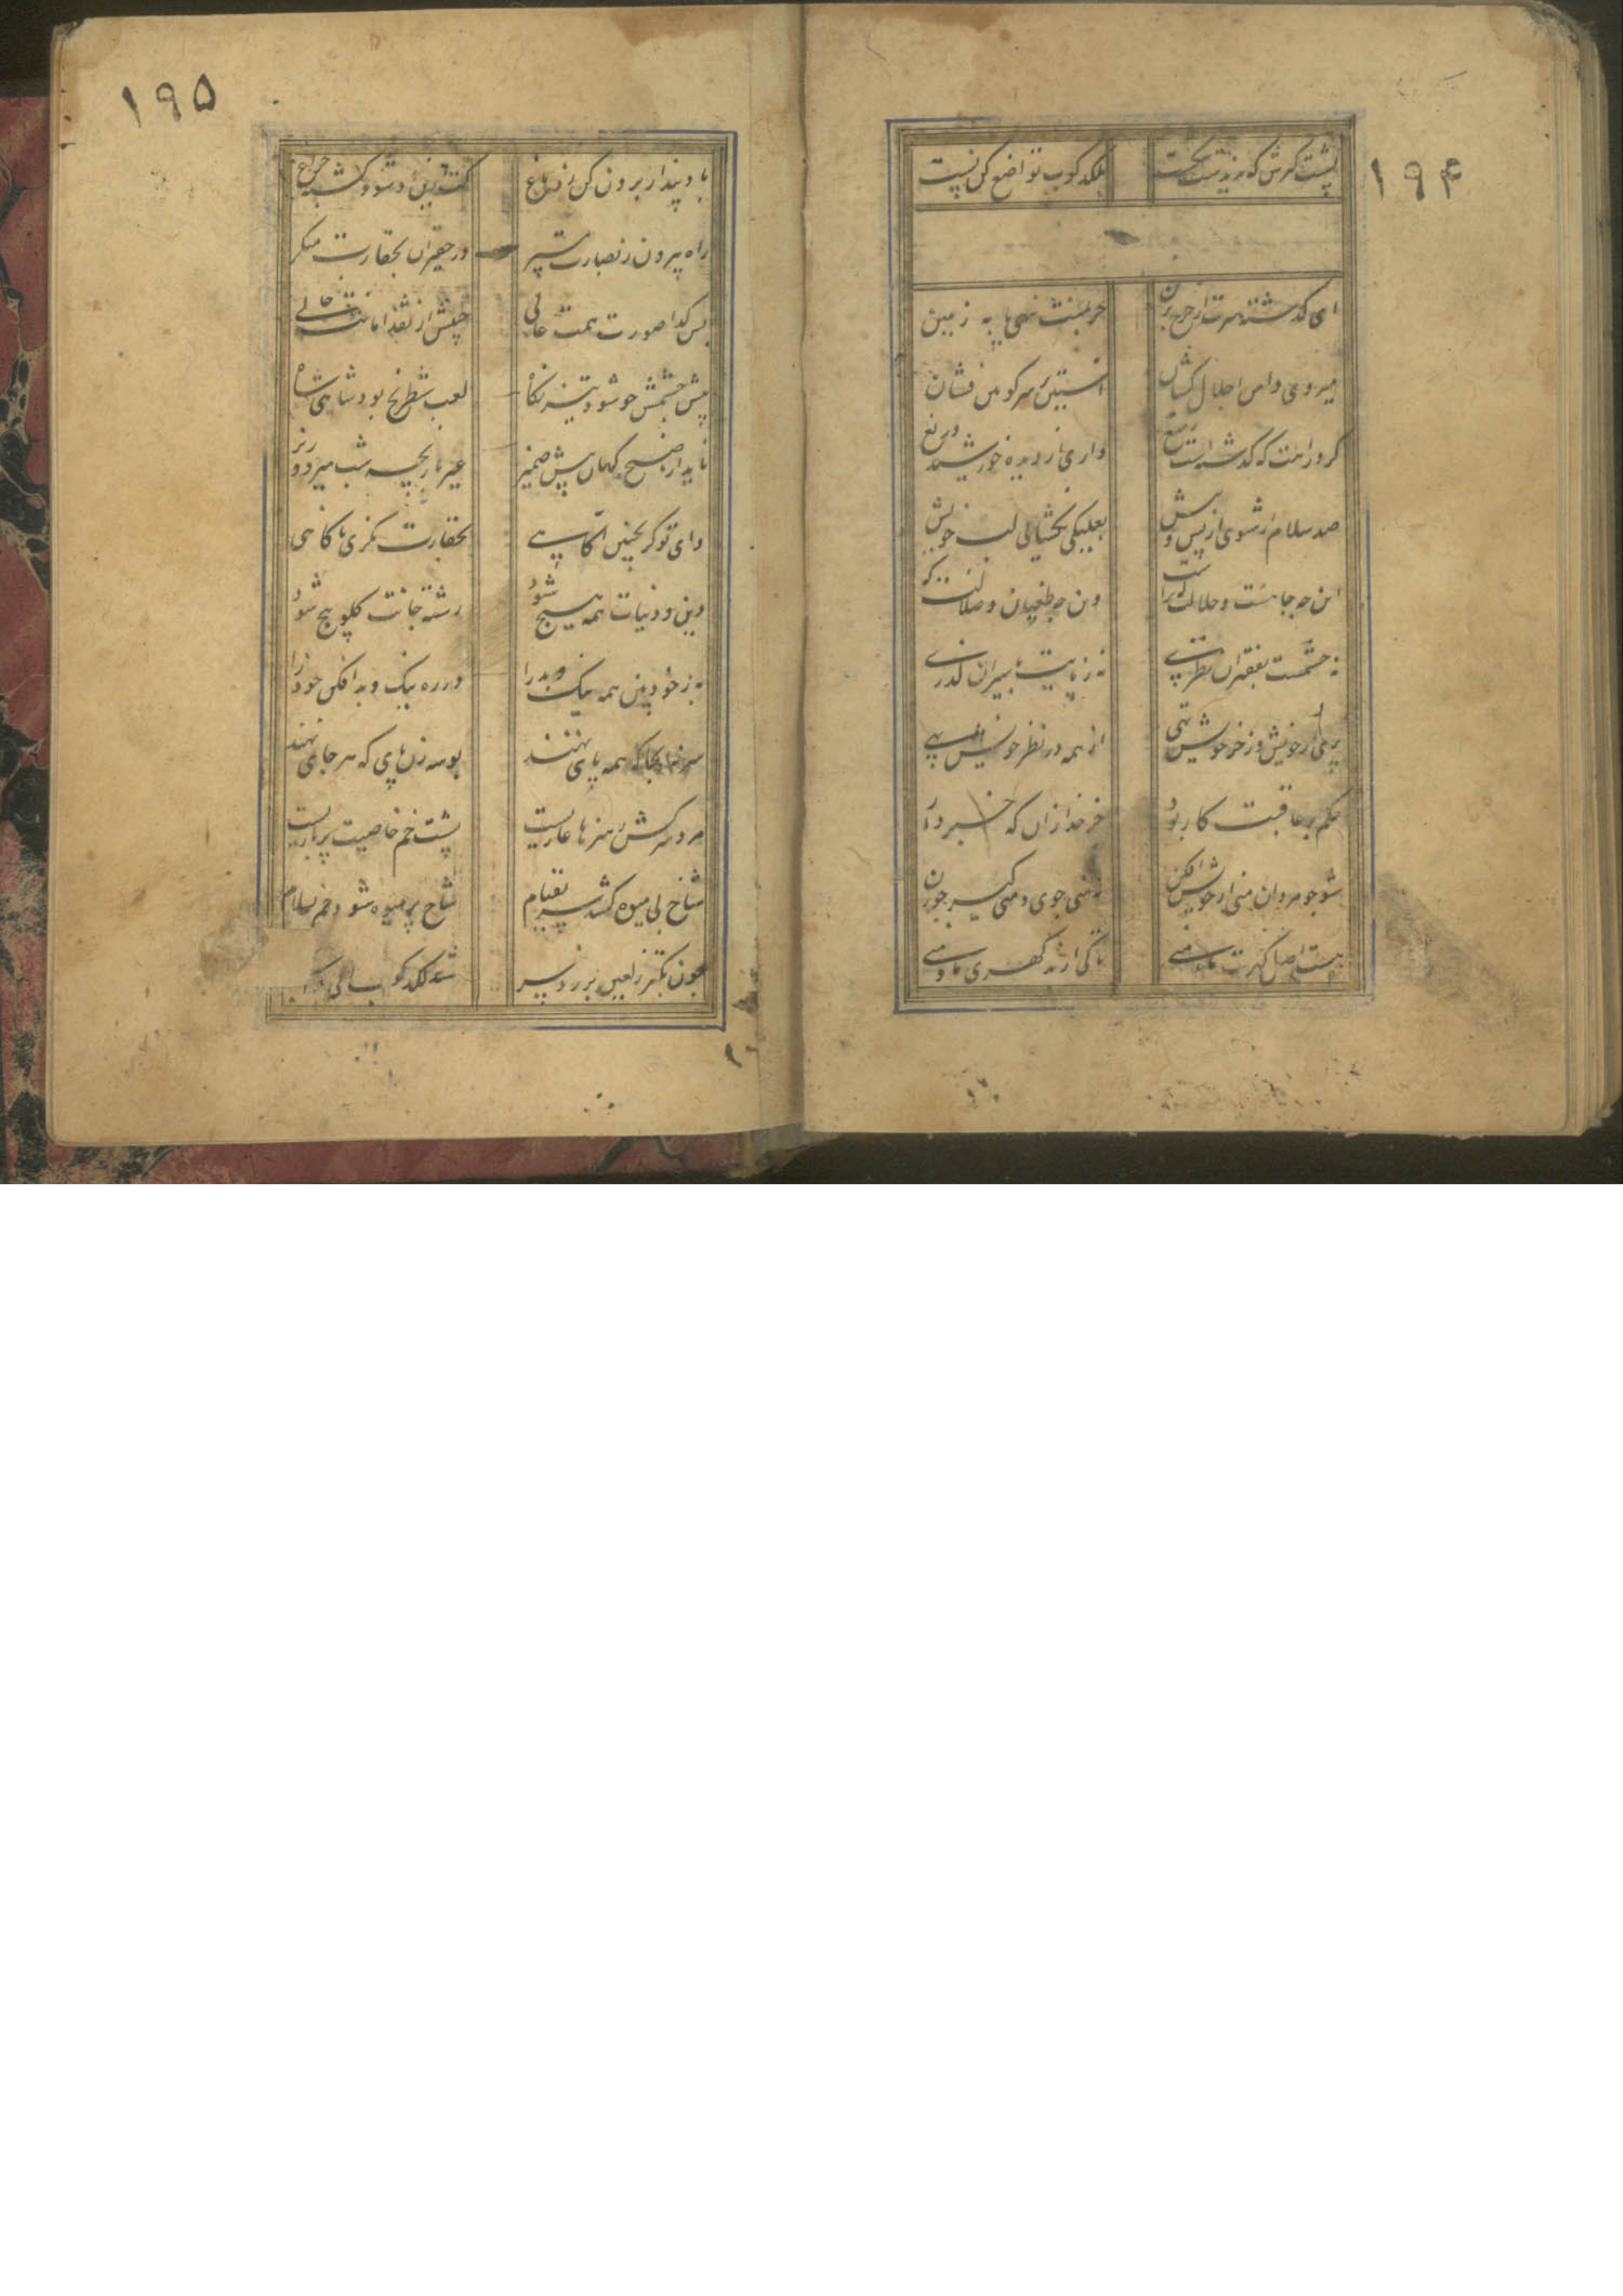 ۱۹۴
پشت کبرش که نه زینست شکست بلکد کوب تواضع کن پست
ای گذشته سرت از چرخ برین جز بمنت ننهی پا به زمین
میروی دامن اجلال کشان آستین بر سر کونین فشان
داری از دیده خورشید دریغ
صد سلام ار شنوی از پس و پیش بعلیکی نگشایی لب خویش
این چه جاهست و جلالت
وین چه طغیان و ضلالت
نه ز چشمت بفقیران نظری نه ز پایت باسیران گذری
پری از خویش و ز خود خویش تهی از همه در نظر خویش بهی
حکم بر عاقبت کار بود
جز خدا زان که خبردار بود
شو چو مردان منی از خویش افکن نه منی جوی و منی کن چو زن
هست اصل گهرت ما و منی تا کی از بد گهری ما و منی
۱۹۵
باد پندار برون کن ز دماغ
راه بیرون ز بصارت مسپر در حقیران بحقارت منگر
بس گدا صورت همت عالی جیبش از نقد امانت خالی
پیش چشمش چو شود تیز نگاه لعب شطرنج بود شاهی شاه
ناید از صبح کهان پیش ضمیر
وای تو گر بچنین آگاهی بحقارت نگری ناگاهی
دین و دنیات همه هیچ شود رشته جانت گلو پیچ شود
به ز خود بین همه نیک و بد را در ره نیک و بد افکن خود را
سر بنه آنجا که همه پای نهند بوسه زن پای که هر جای نهند
مرد سرکش ز هنرها عاریست پشت خم خاصیت پرباریست
شاخ بی میوه کشد سر بقیام شاخ پر میوه شود خم بسلام
چون تکبر ز لعین بر زد سر شد لکد کوب